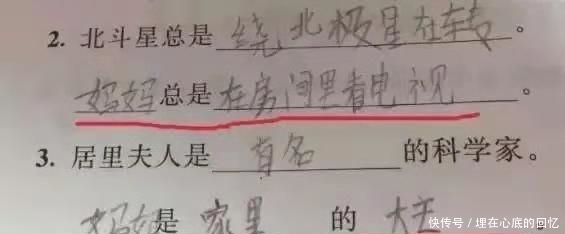 2. 北斗星总是绕北极星在转。
妈妈总是在房间里看电视。
3. 居里夫人是有名的科学家。
妈妈是家里的大王
快传号 / 埋在心底的回忆